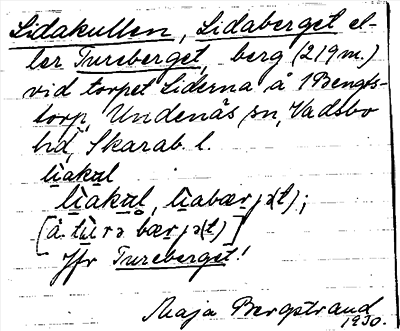 Lidakullen, Lidaberget el-
ler Tureberget, berg (219 m.)
vid torpet Liderna å Bengts-
torp, Undenäs sn, Vadsbo
hd, Skarab. l.
lìakul
lìakul, lìabærjə(t);
[å. tùrə bærjə(t)]
Jfr Tureberget!
Maja Bergstrand
1930.